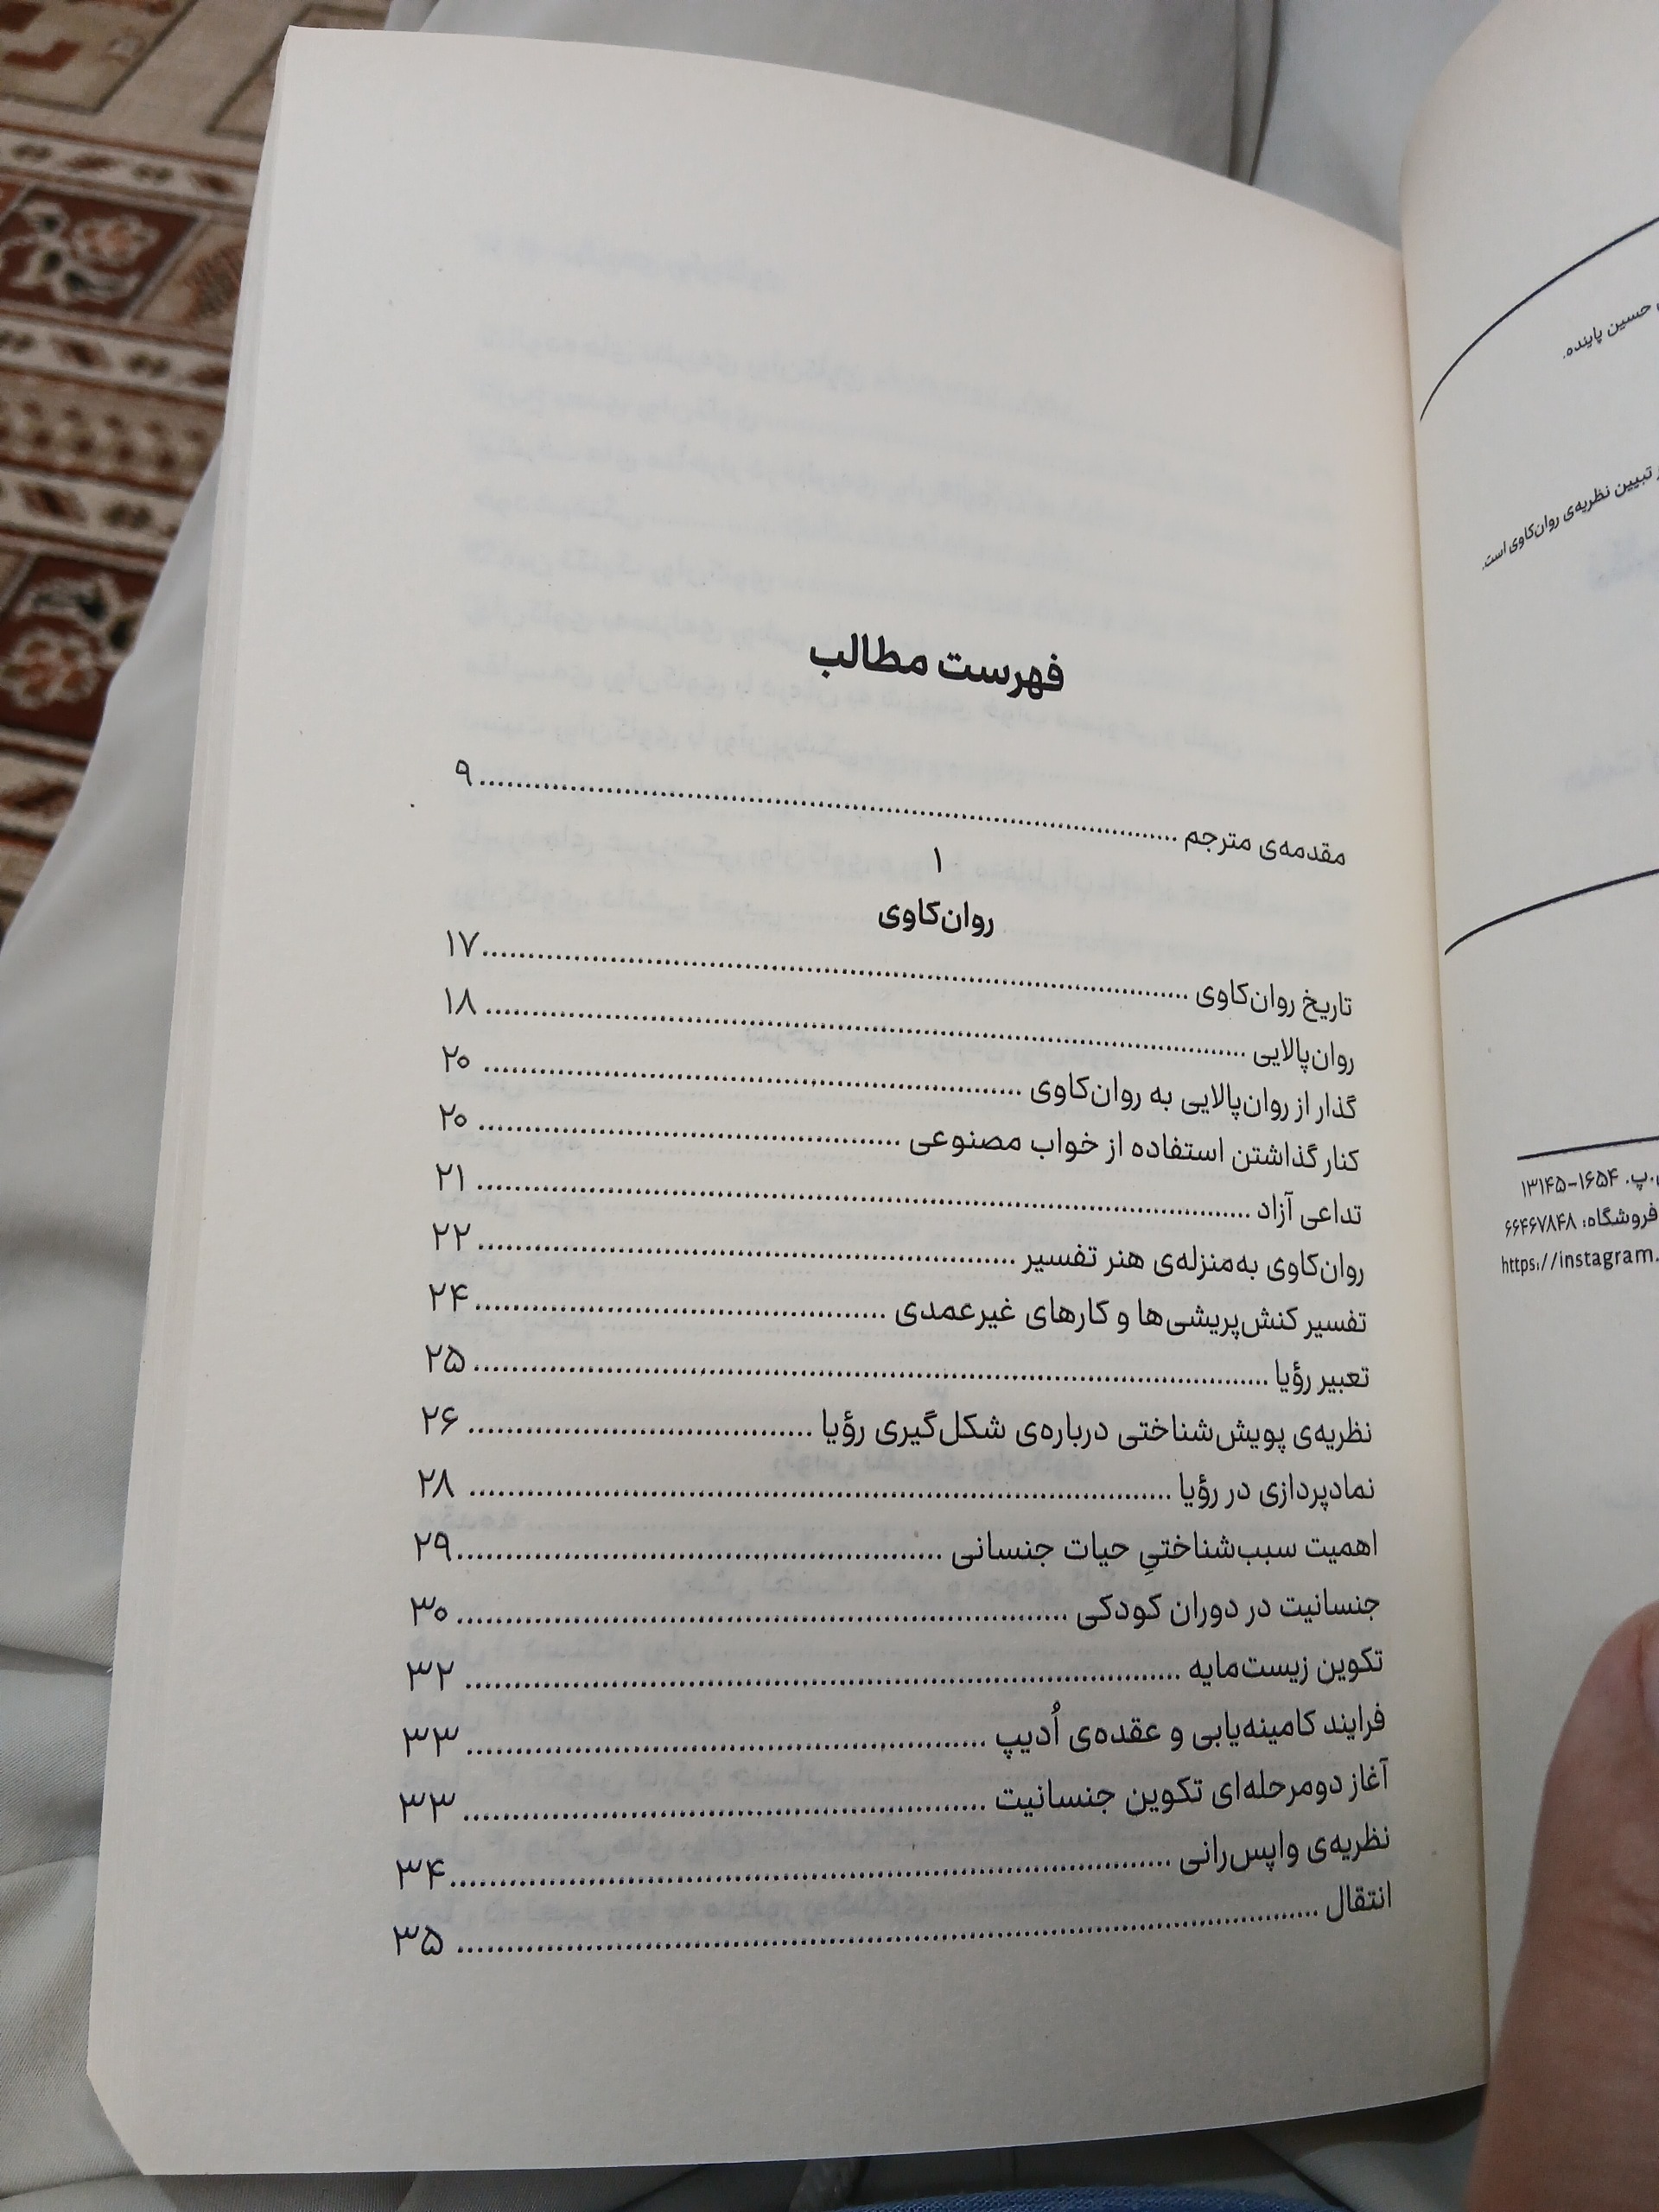 فهرست مطالب
مقدمه‌ی مترجم ........ ۹
۱
روان‌کاوی
تاریخ روان‌کاوی ........ ۱۷
روان‌پالایی ........ ۱۸
گذار از روان‌پالایی به روان‌کاوی ........ ۲۰
کنار گذاشتن استفاده از خواب مصنوعی ........ ۲۰
تداعی آزاد ........ ۲۱
روان‌کاوی به‌منزله‌ی هنر تفسیر ........ ۲۲
تفسیر کنش‌پریشی‌ها و کارهای غیرعمدی ........ ۲۴
تعبیر رؤیا ........ ۲۵
نظریه‌ی پویش‌شناختی درباره‌ی شکل‌گیری رؤیا ........ ۲۶
نمادپردازی در رؤیا ........ ۲۸
اهمیت سبب‌شناختیِ حیات جنسانی ........ ۲۹
جنسانیت در دوران کودکی ........ ۳۰
تکوین زیست‌مایه ........ ۳۲
فرایند کامینه‌یابی و عقده‌ی اُدیپ ........ ۳۳
آغاز دومرحله‌ای تکوین جنسانیت ........ ۳۳
نظریه‌ی واپس‌رانی ........ ۳۴
انتقال ........ ۳۵
حسین پاینده.
تبیین نظریه‌ی روان‌کاوی است.
پ. ۱۶۵۴-۱۳۱۴۵
فروشگاه: ۶۶۴۶۷۸۴۸
https://instagram.